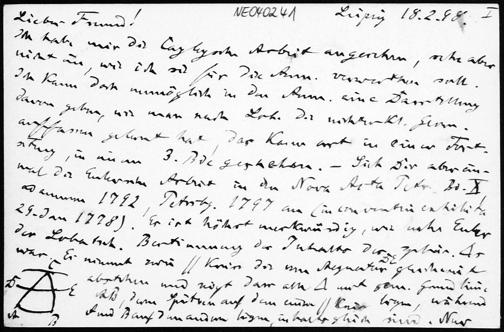 NE040241
Leipzig 18.2.98. I
Lieber Freund!
Ich habe mir die Cayleysche Arbeit angesehen, sehe aber
nicht ein, wie ich sie für die Ann. verwerthen soll.
Ich kann doch unmöglich in den Ann. eine Darstellung
davon geben, wie man nach Lob. die nichteukl. Geom.
auffassen gekonnt hat, das kann erst in einer Fort-
setzung, in einem 3. Bde geschehen. — Sieh Dir aber ein-
mal die Eulersche Arbeit in den Nova Acta Petr. Bd. X
ad annum 1792, Petersbg. 1797 an (inconventui exhibita
29. Jan 1778). Es ist höchst merkwürdig, wie nahe Euler
der Lobatsch. Bestimmung des Inhalts der
war. Er nimmt zwei // Kreise die vom Aequator gleichweit
abstehen und zeigt dass alle Δ mit gem. Grundlinie
AB, deren Spitzen auf dem einen // Kreis liegen, während
A und B auf dem andern liegen, inhaltsgleich sind. Nun
D E
A B